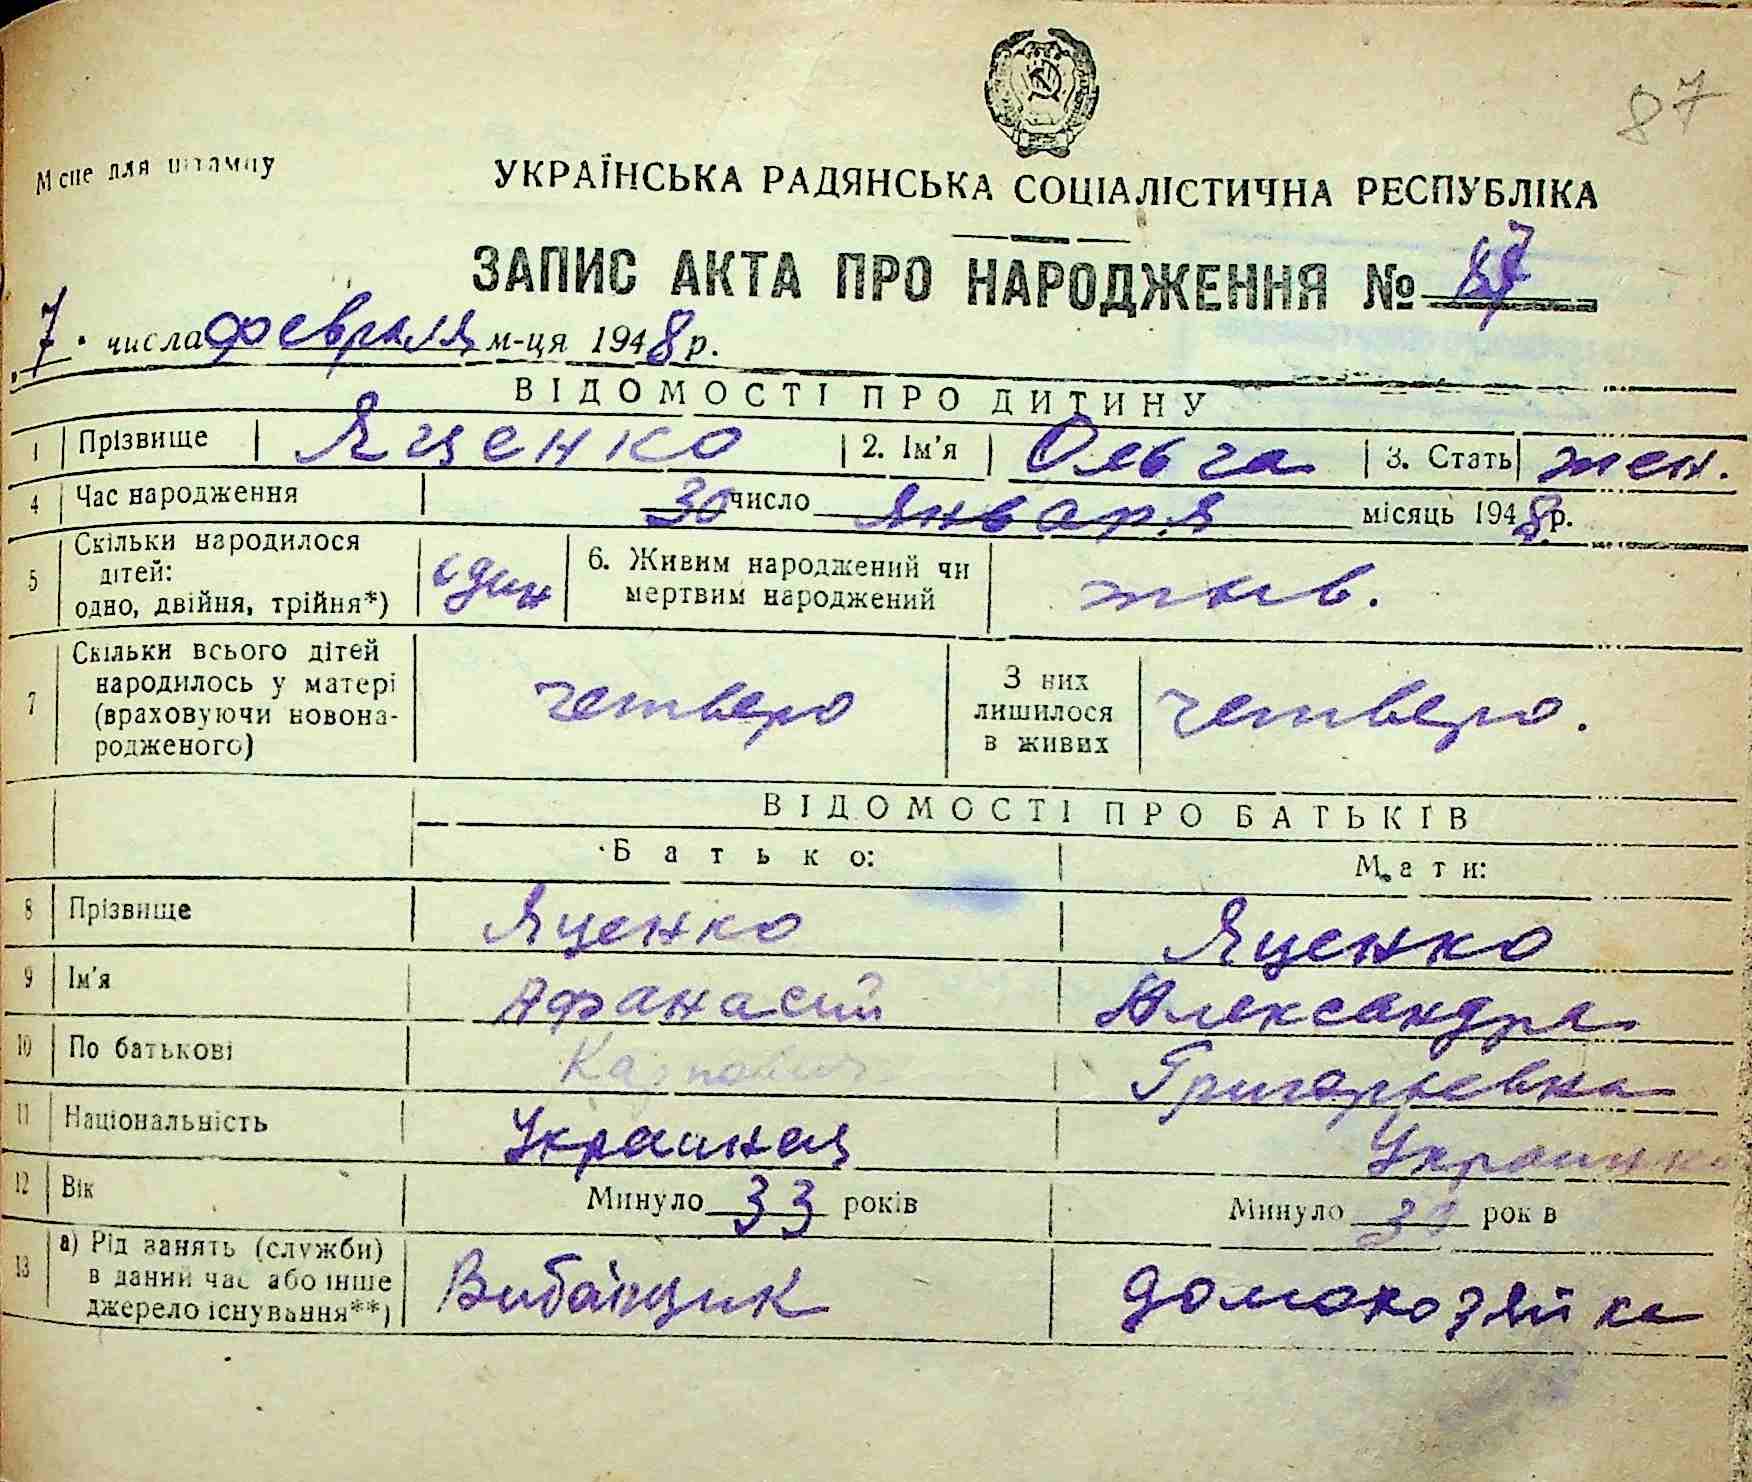 87
Місце для штампу
УКРАЇНСЬКА РАДЯНСЬКА СОЦІАЛІСТИЧНА РЕСПУБЛІКА
ЗАПИС АКТА ПРО НАРОДЖЕННЯ № 87
„7" числа февраля м-ця 1948 р.
ВІДОМОСТІ ПРО ДИТИНУ
1 Прізвище Яценко 2. Ім'я Ольга 3. Стать жен.
4 Час народження 30 число января місяць 1948 р.
5 Скільки народилося дітей: одно, двійня, трійня*) один 6. Живим народжений чи мертвим народжений жив.
7 Скільки всього дітей народилось у матері (враховуючи новонародженого) четверо З них лишилося в живих четверо.
ВІДОМОСТІ ПРО БАТЬКІВ
Батько: Мати:
8 Прізвище Яценко Яценко
9 Ім'я Афанасий Александра
10 По батькові Карпович Григорьевна
11 Національність Украинец Украинка
12 Вік Минуло 33 років Минуло років
13 а) Рід занять (служби) в даний час або інше джерело існування**) домохозяйка